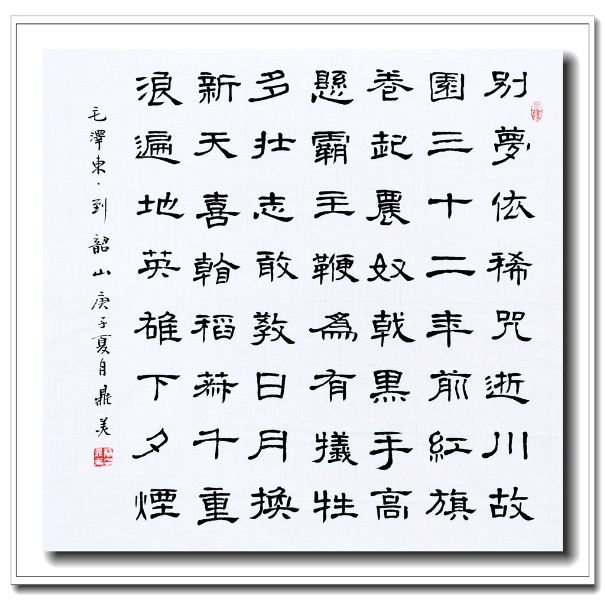 别夢依稀咒逝川故
園三十二年前紅旗
卷起農奴戟黑手高
懸霸主鞭為有犧牲
多壯志敢教日月換
新天喜看稻菽千重
浪遍地英雄下夕煙
毛澤東·到韶山庚子夏月鼎美